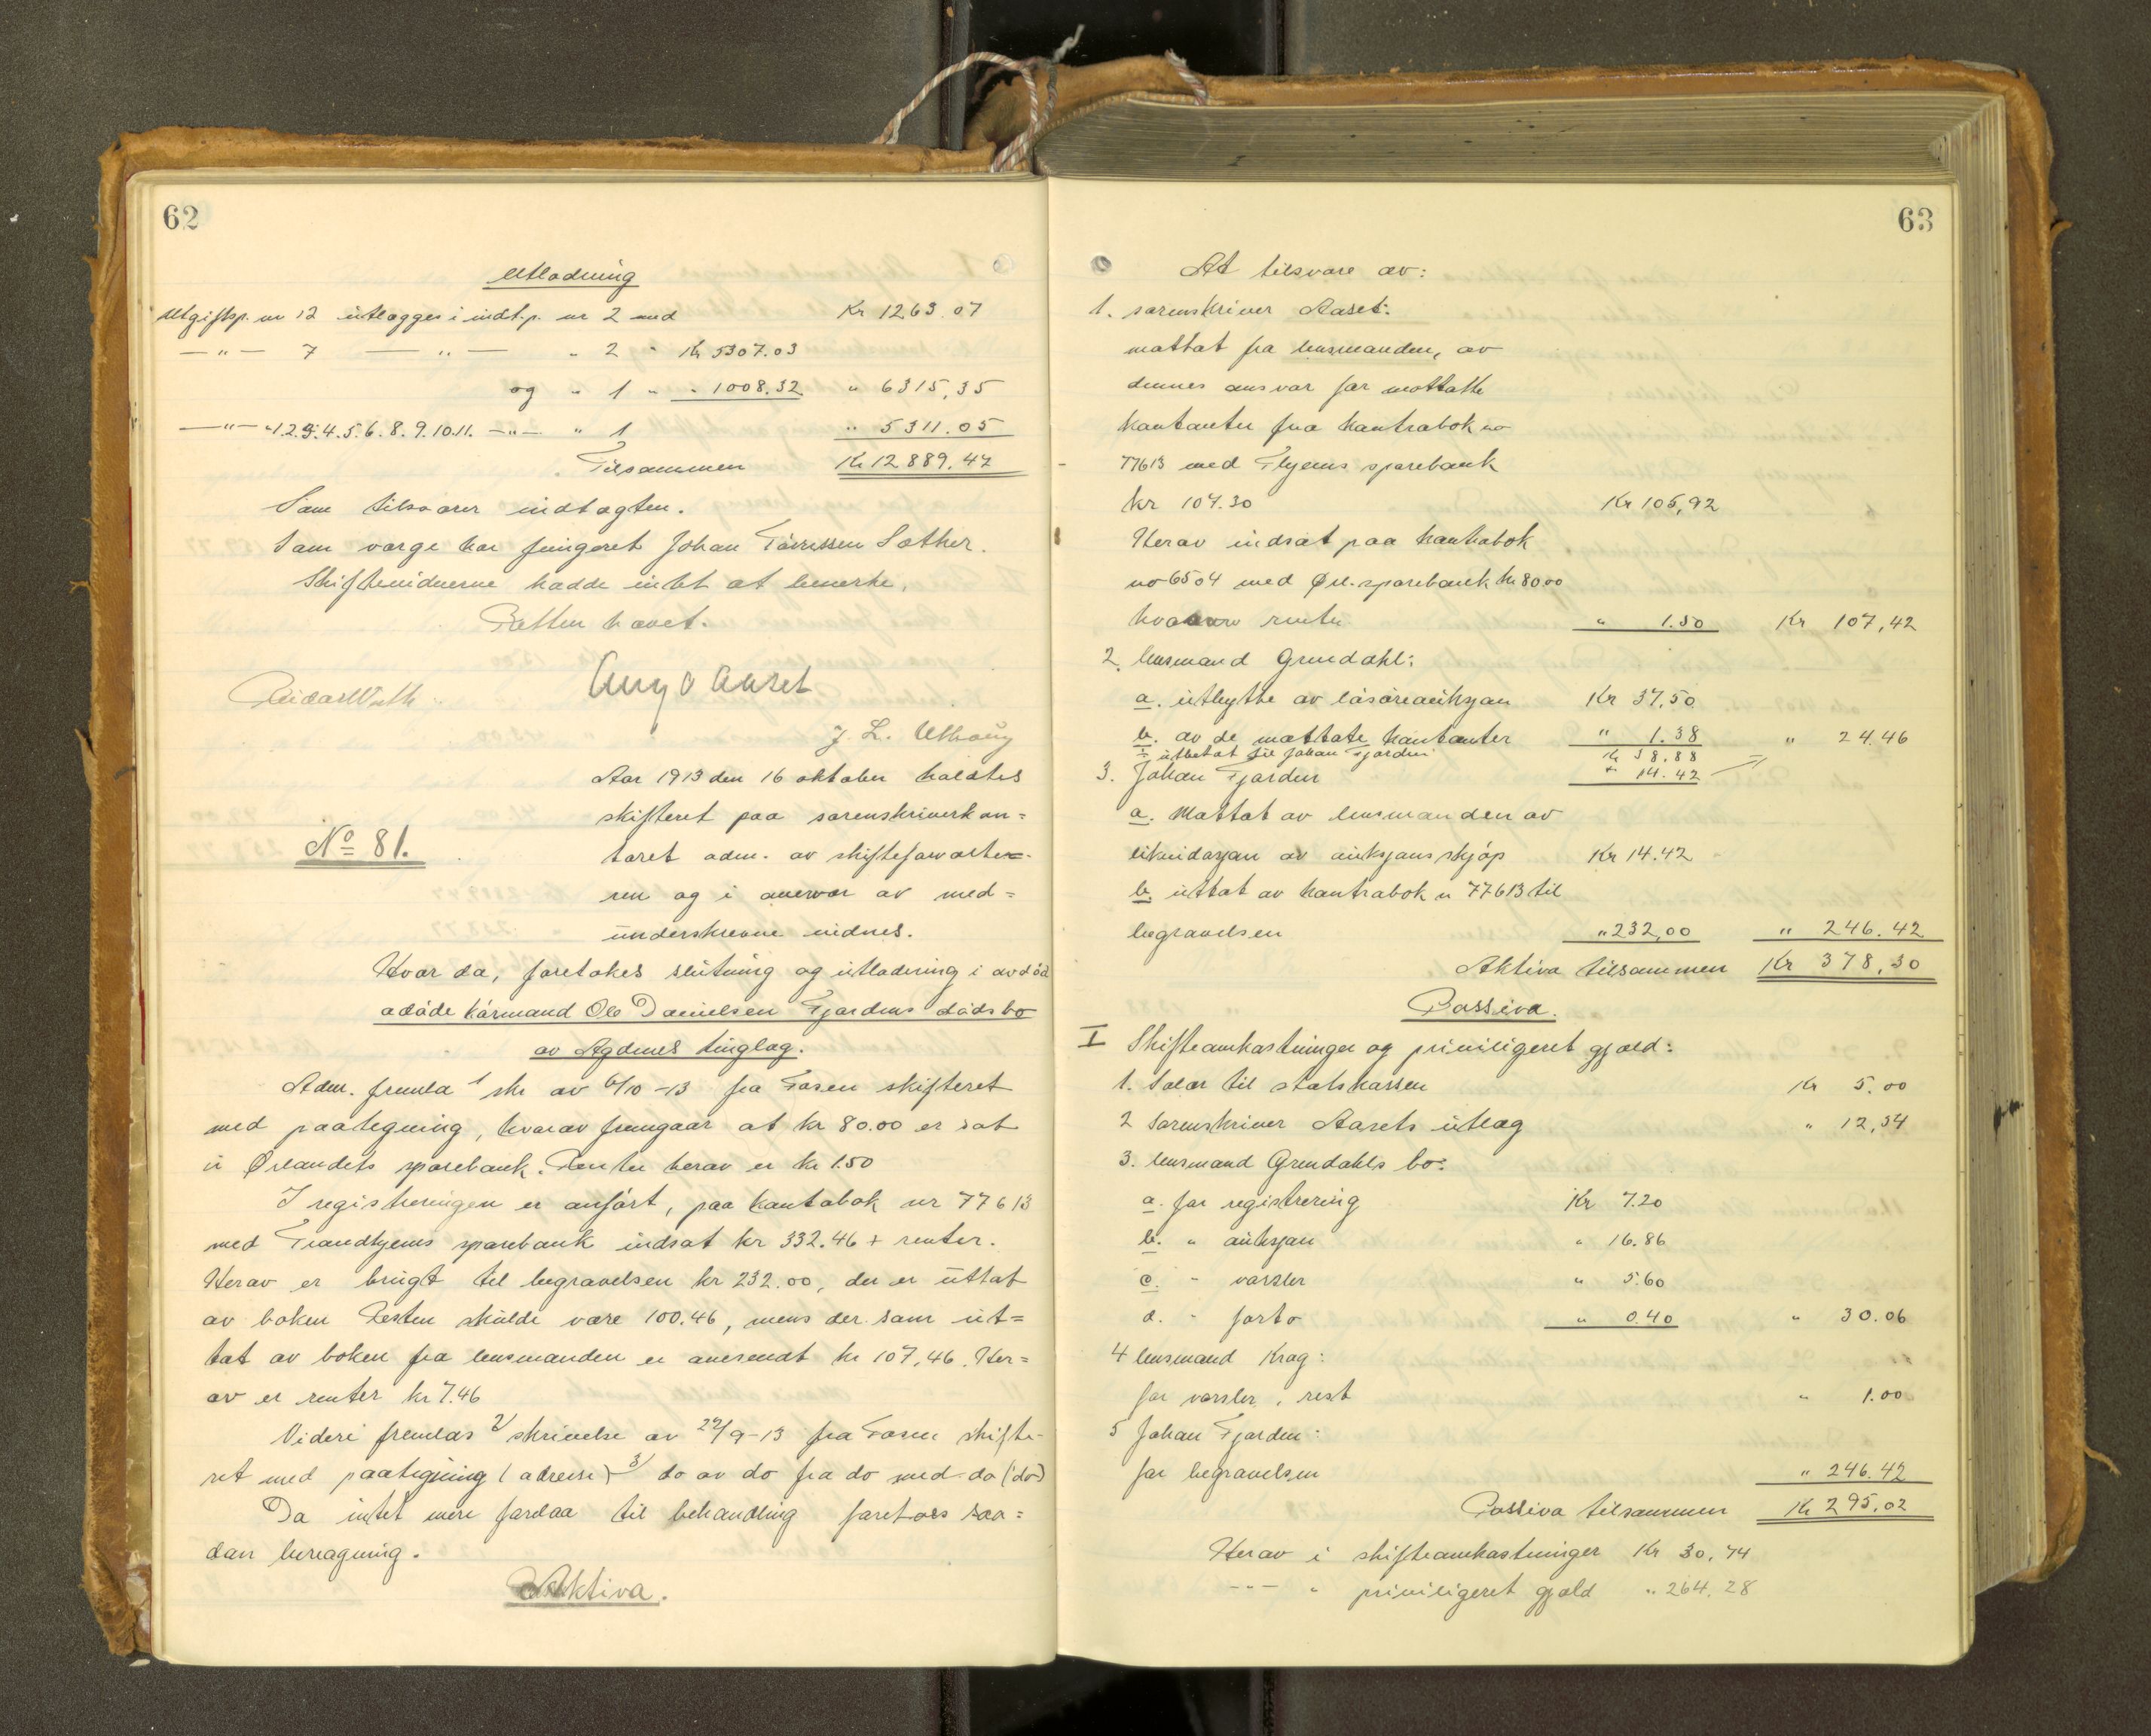 62
Utlodning
Utgiftsp. nr 12 utlægges i indt.p. nr 2 med Kr 1263.07
—"— 7 —"— " 2 " Kr 5307.03
og " 1 " " 1008.32 " 6315,35
—"— 1.2.3.4.5.6.8.9.10.11. —"— " 1 " 5311.05
Tilsammen Kr 12889.47
Som tilsvarer indtægten.
Som værge har fungeret Johan Sæther.
Skiftevidnerne hadde intet at bemerke.
Retten hævet.
Aaset
J. L. Uthaug
Aar 1913 den 16 oktober holdtes
skifteret paa sorenskriverkon=
No 81.
toret adm. av skifteforvalte-
ren og i overvær av med=
underskrevne vidnes.
Hvor da, foretokes slutning og utlodning i avdød
adøde kårmand Ole Danielsen Fjordens dødsbo
av Agdenes tinglag.
Adm. fremla 1 skr av 6/10-13 fra Fosen skifteret
med paategning, hvorav fremgaar at kr 80.00 er sat
i Ørlandets sparebank. Renter herav er kr 1.50
I registreringen er anført, paa kontobok nr 77613
med Trondhjems sparebank indsat kr 332.46 + renter.
Herav er brugt til begravelsen kr 232.00, der er uttat
av boken Resten skulde være 100.46, mens der som ut=
tat av boken fra lensmanden er anvendt kr 107,46. Her=
av er renter kr 7.46
Videre fremlas 2/ skrivelse av 22/9-13 fra Fosen skifte-
ret med paategning (adresse) 3/ do av do fra do med do (do)
Da intet mere forelaa til behandling foretoes saa=
dan beregning.
Aktiva.
63
At tilsvare av:
1. sorenskriver Aaset:
mottat fra lensmanden, av
dennes ansvar for mottatte
kontanter fra kontrabok no
77613 med Thjems sparebank
kr 107.30 Kr 105,92
Herav indsat paa kontrabok
no 6504 med Ørl. sparebank kr 80.00
hvorav rente " 1.50 Kr 107,42
2. lensmand Grendahl:
a. utbytte av løsøreauksjon Kr 37,50
b. av de mottate kontanter " 1.38 " 24.46
÷ utbetat til Johan Fjorden Kr 38.88
3. Johan Fjorden ÷ 14.42
a. Mottat av lensmanden av
likvidasjon av auksjonskjøp Kr 14.42
b. uttat av kontrabok n 77613 til
begravelsen " 232,00 " 246.42
Aktiva tilsammen Kr 378,30
Passiva.
I Skifteomkostninger og priviligeret gjæld:
1. Salær til statskassen Kr 5.00
2 Sorenskriver Aasets utlæg " 12,54
3. lensmand Grendahls bo:
a. for registrering Kr 7.20
b. " auksjon " 16.86
c. " varsler " 5.60
d. " porto " 0.40 " 30.06
4 lensmand Krag:
for varsler, rest " 1.00
5 Johan Fjorden:
for begravelsen " 246.42
Passiva tilsammen Kr 295,02
Herav i skifteomkostninger Kr 30,74
--- " priviligeret gjæld " 264.28